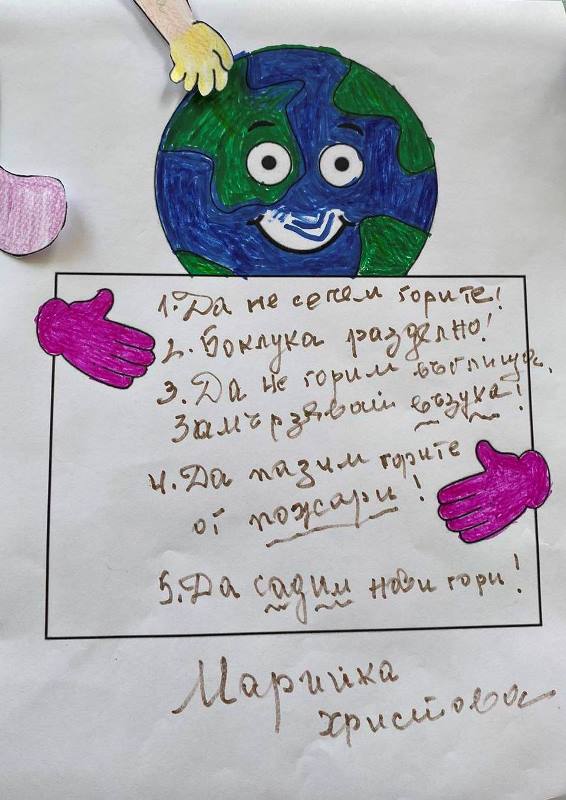 1. Да не сечем горите!
2. Боклука разделно!
3. Да не горим въглища,
Замърсяваш въздуха!
4. Да пазим горите
от пожари!
5. Да садим нови гори!
Марийка
Христова